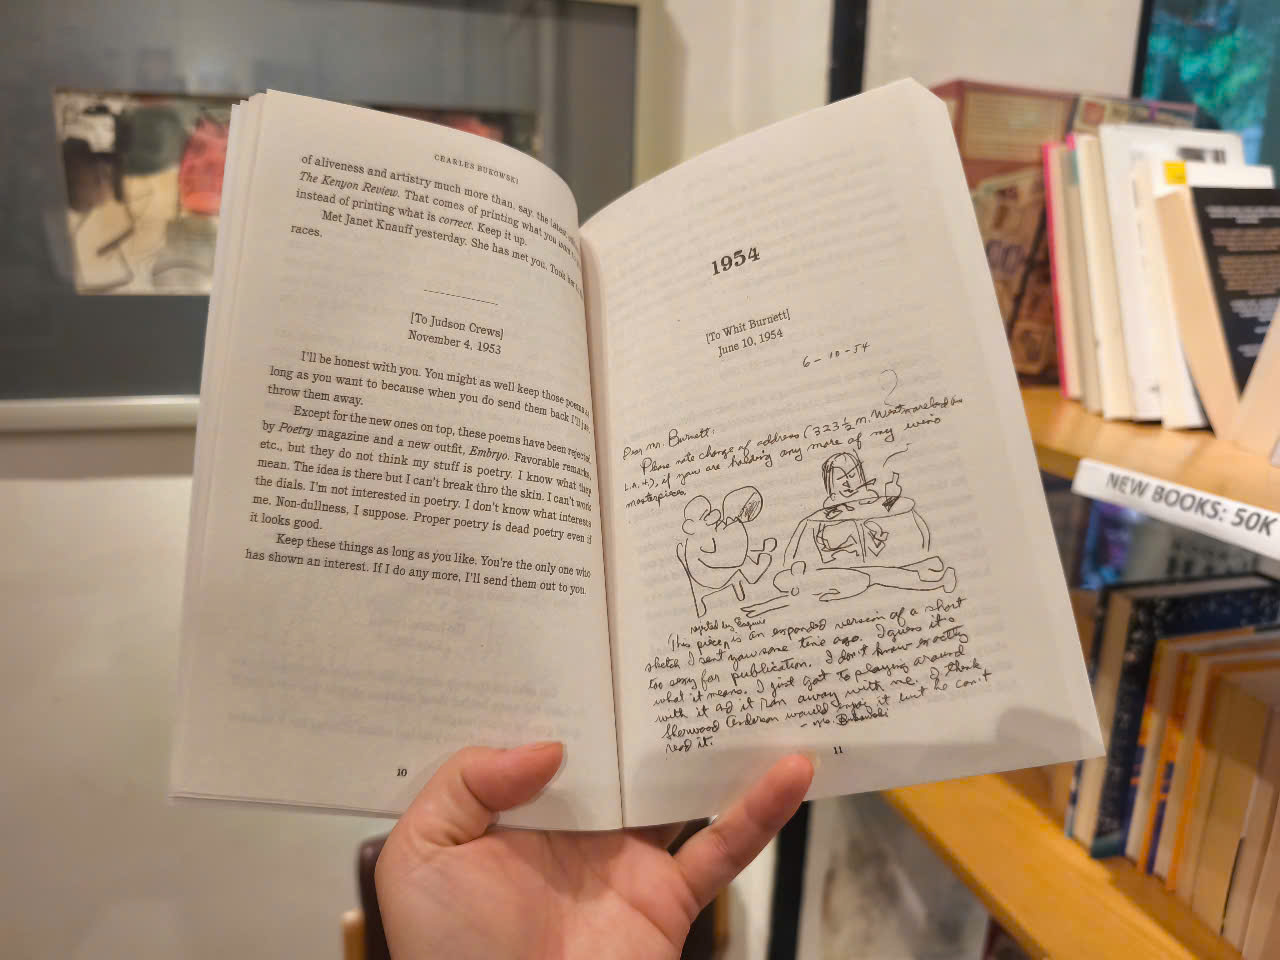 CHARLES BUKOWSKI
of aliveness and artistry much more than, say, the latest
The Kenyon Review. That comes of printing what you want to
instead of printing what is correct. Keep it up.
Met Janet Knauff yesterday. She has met you. Took her to
races.
[To Judson Crews]
November 4, 1953
I'll be honest with you. You might as well keep those poems as
long as you want to because when you do send them back I'll just
throw them away.
Except for the new ones on top, these poems have been rejected
by Poetry magazine and a new outfit, Embryo. Favorable remarks,
etc., but they do not think my stuff is poetry. I know what they
mean. The idea is there but I can't break thro the skin. I can't work
the dials. I'm not interested in poetry. I don't know what interests
me. Non-dullness, I suppose. Proper poetry is dead poetry even if
it looks good.
Keep these things as long as you like. You're the only one who
has shown an interest. If I do any more, I'll send them out to you.
10
1954
[To Whit Burnett]
June 10, 1954
6-10-54
Dear Mr. Burnett:
Please note change of address (323 1/2 N. Westmoreland Ave
L.A. 4), if you are holding any more of my wino
masterpieces.
rejected by Esquire
This piece is an expanded version of a short
sketch I sent you some time ago. I guess it's
too sexy for publication. I don't know exactly
what it means. I just got to playing around
with it and it ran away with me. I think
Sherwood Anderson would enjoy it but he can't
read it.
Bukowski
11
NEW BOOKS: 50K